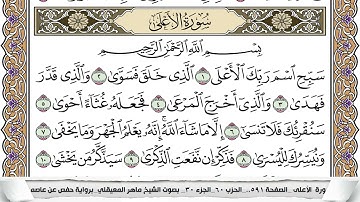 سُورَةُ الأَعْلَى
بِسْمِ اللَّهِ الرَّحْمَٰنِ الرَّحِيمِ
سَبِّحِ اسْمَ رَبِّكَ الْأَعْلَى ١ الَّذِي خَلَقَ فَسَوَّىٰ ٢ وَالَّذِي قَدَّرَ
فَهَدَىٰ ٣ وَالَّذِي أَخْرَجَ الْمَرْعَىٰ ٤ فَجَعَلَهُ غُثَاءً أَحْوَىٰ ٥
سَنُقْرِئُكَ فَلَا تَنسَىٰ ٦ إِلَّا مَا شَاءَ اللَّهُ إِنَّهُ يَعْلَمُ الْجَهْرَ وَمَا يَخْفَىٰ ٧
وَنُيَسِّرُكَ لِلْيُسْرَىٰ ٨ فَذَكِّرْ إِن نَّفَعَتِ الذِّكْرَىٰ ٩ سَيَذَّكَّرُ مَن يَخْشَىٰ ١٠
ورة الاعلى الصفحة ٥٩١. الحزب ٦٠ الجزء ٣٠. بصوت الشيخ ماهر المعيقلي برواية حفص عن عاصم